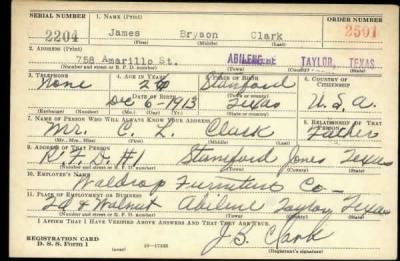 SERIAL NUMBER 1. NAME (Print) ORDER NUMBER
2204 James Bryson Clark 2501
(First) (Middle) (Last)
2. ADDRESS (Print)
758 Amarillo St. ABILENE TAYLOR, TEXAS
(Number and street or R. F. D. number) (Town) (County) (State)
3. TELEPHONE 4. AGE IN YEARS 5. PLACE OF BIRTH 6. COUNTRY OF CITIZENSHIP
None 26 Stamford
DATE OF BIRTH (Town or county)
Dec 6-1913 Texas U.S.A.
(Exchange) (Number) (Mo.) (Day) (Yr.) (State or country)
7. NAME OF PERSON WHO WILL ALWAYS KNOW YOUR ADDRESS 8. RELATIONSHIP OF THAT PERSON
Mr. C. L. Clark Father
(Mr., Mrs., Miss) (First) (Middle) (Last)
9. ADDRESS OF THAT PERSON
R.F.D. #1 Stamford Jones Texas
(Number and street or R. F. D. number) (Town) (County) (State)
10. EMPLOYER'S NAME
Waldrop Furniture Co-
11. PLACE OF EMPLOYMENT OR BUSINESS
& Walnut Abilene Taylor Texas
(Number and street or R. F. D. number) (Town) (County) (State)
I AFFIRM THAT I HAVE VERIFIED ABOVE ANSWERS AND THAT THEY ARE TRUE.
REGISTRATION CARD
D. S. S. Form 1 16-17105 J.B. Clark
(over) (Registrant's signature)